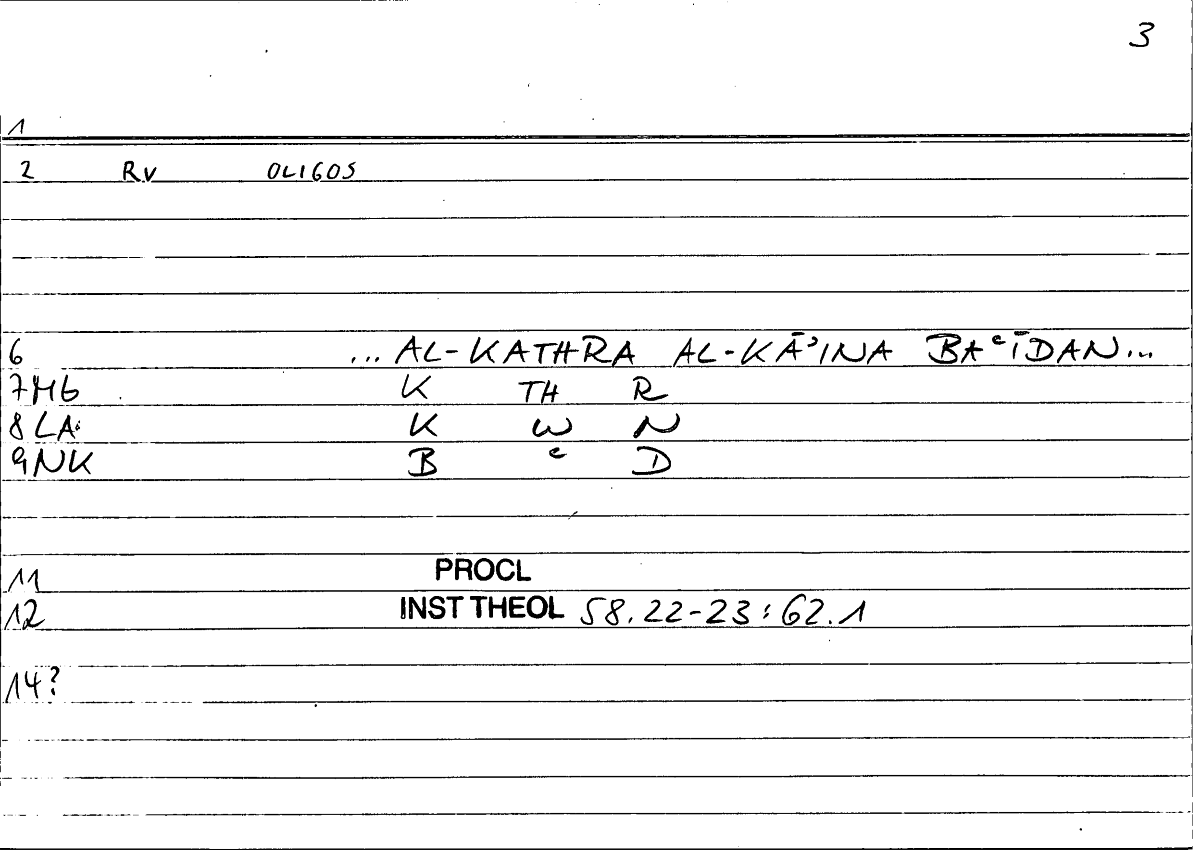 3
1
2 RV OLIGOS
6 ... AL-KATHRA AL-KĀʾINA BAᶜĪDAN...
7 Mb K TH R
8 LA K W N
9 NK B ᶜ D
11 PROCL
12 INST THEOL 58.22-23:62.1
14?